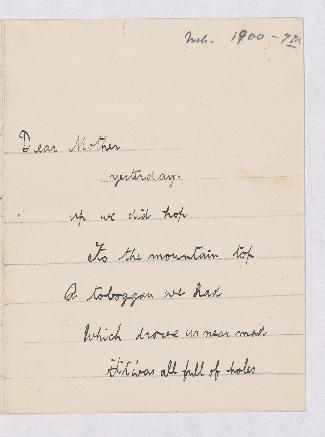 Mch. 1900 - 7th
Dear Mother
yesterday.
up we did hop
To the mountain top
A toboggan we had
Which drove us near mad
It was all full of holes